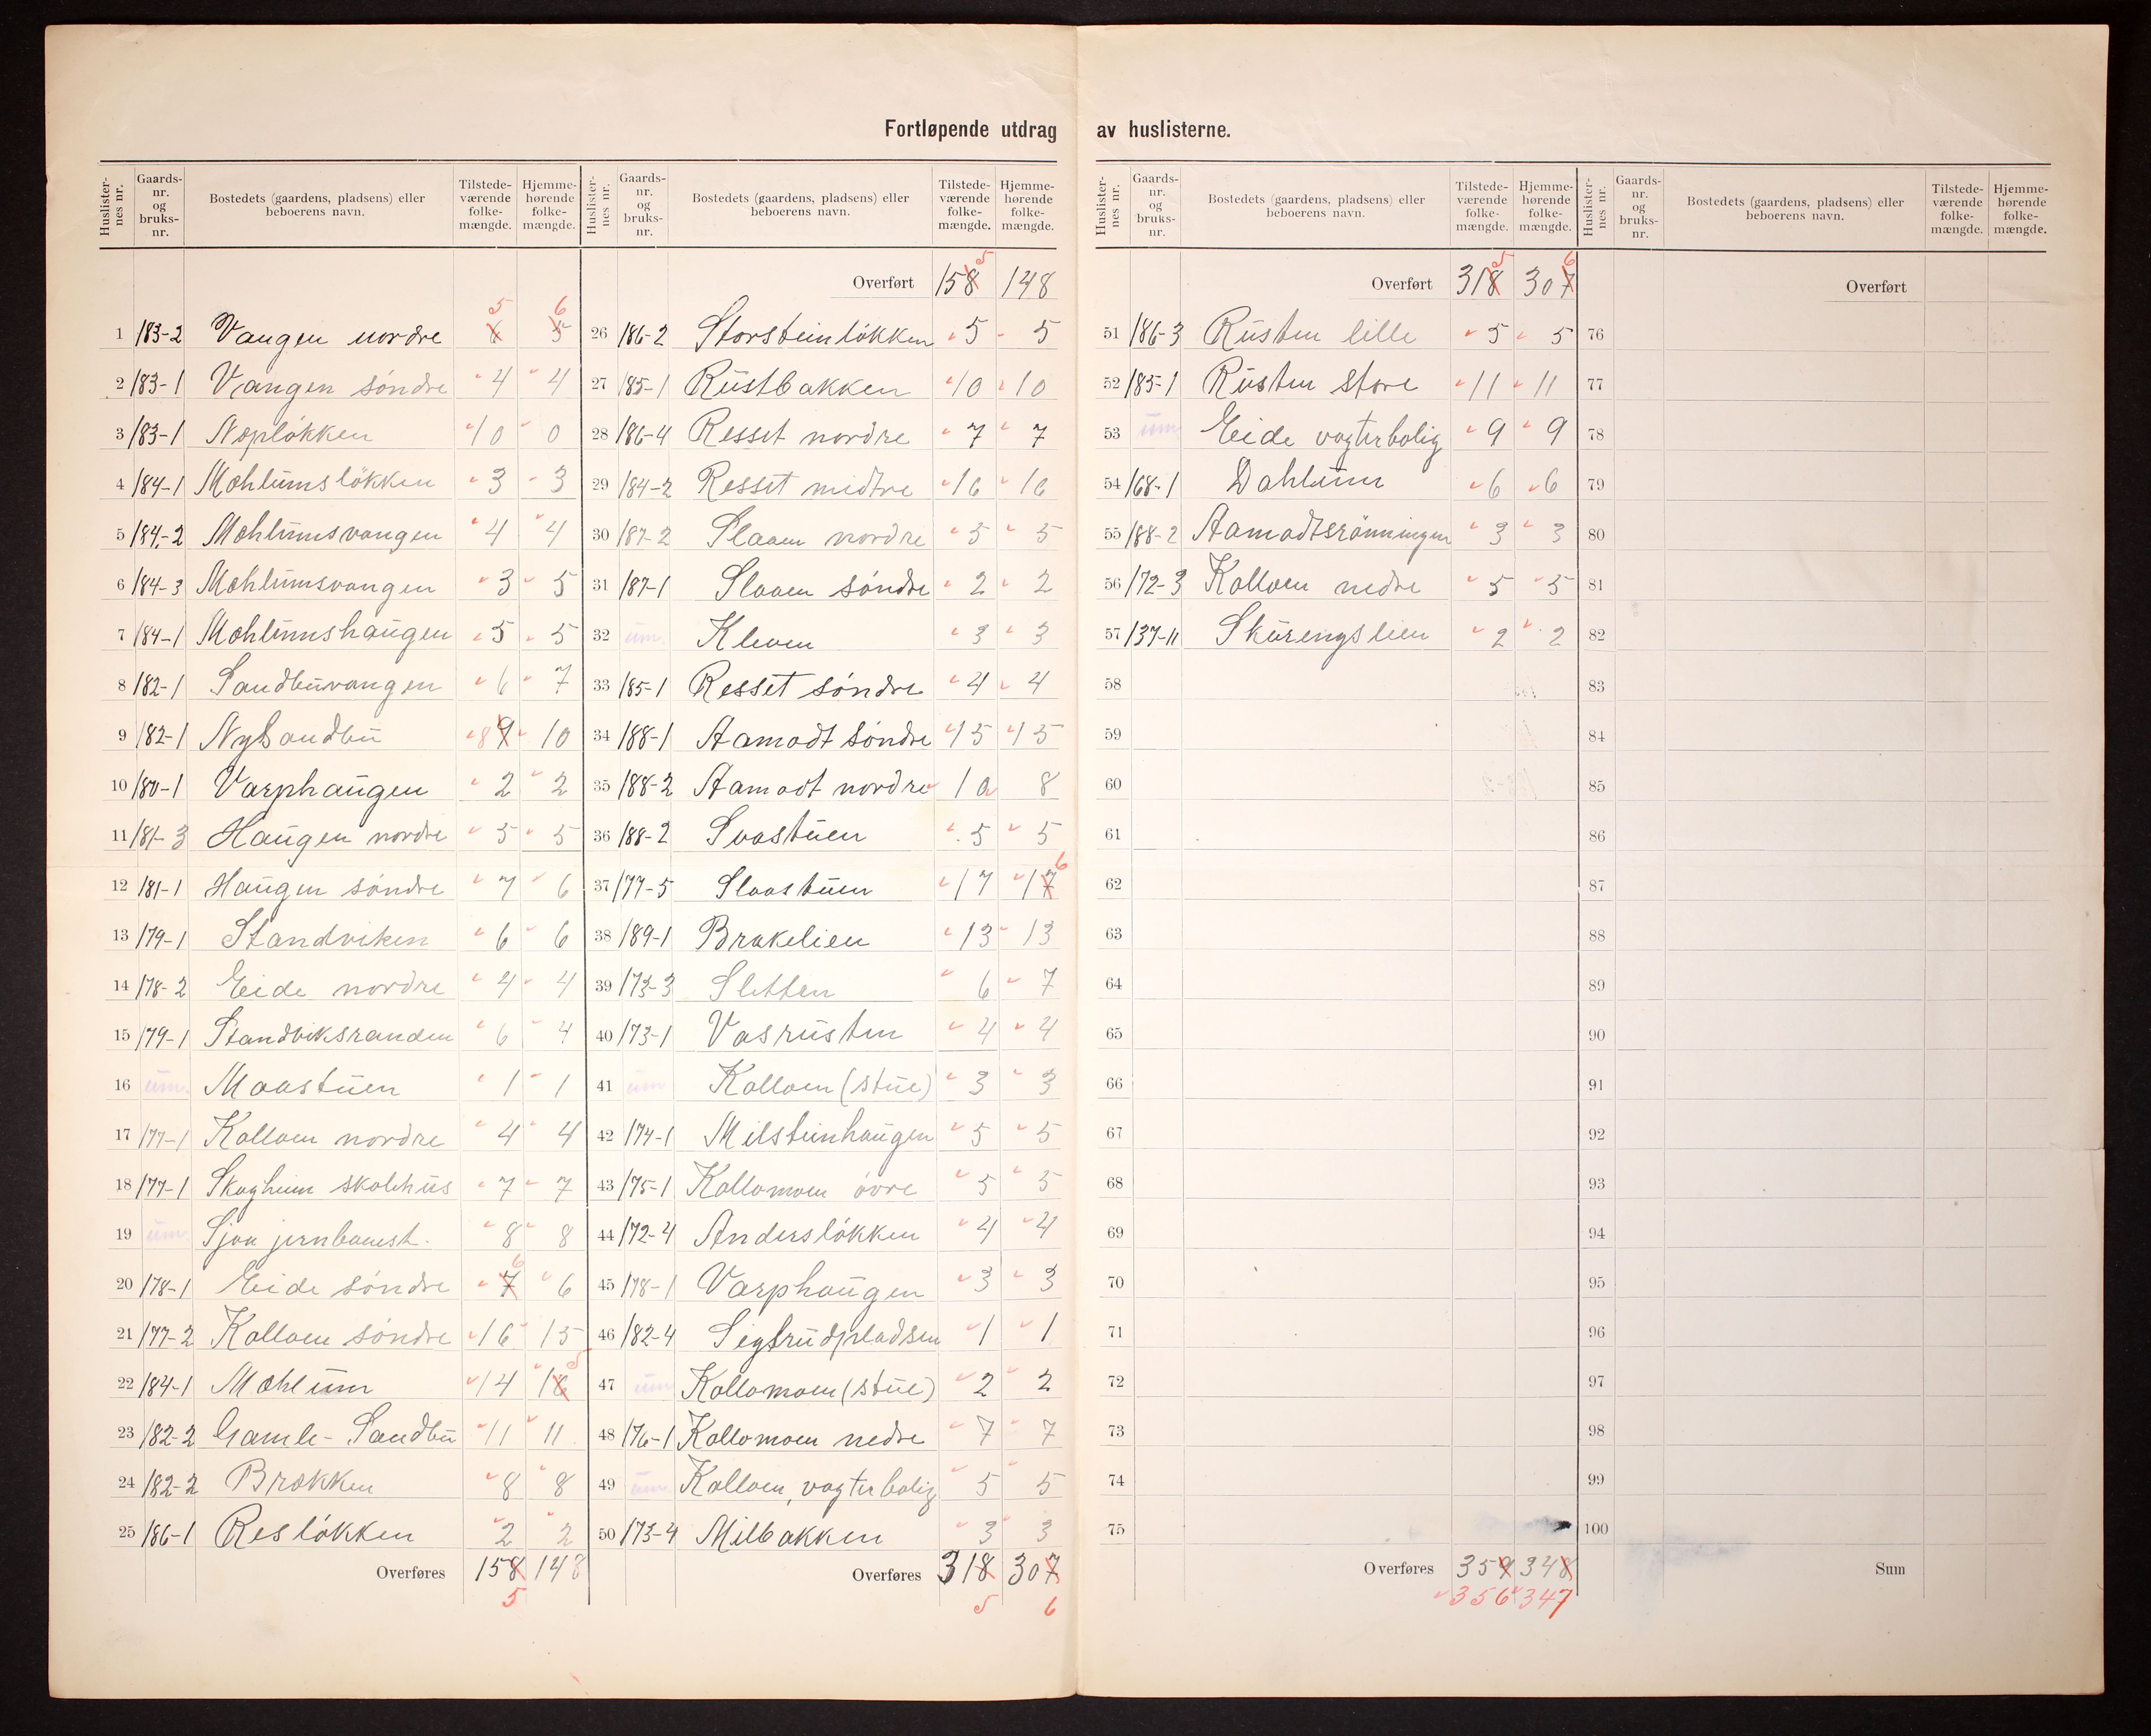 Fortløpende utdrag av huslisterne.
Huslisternes nr. Gaards-nr. og bruks-nr. Bostedets (gaardens, pladsens) eller beboerens navn. Tilstede-værende folke-mængde. Hjemme-hørende folke-mængde.
1 183-2 Vangen nordre 6 5 5 6
2 183-1 Vangen søndre 4 4
3 183-1 Nopløkken 10 0
4 184-1 Mæhlumsløkken 3 3
5 184-2 Mæhlumsvangen 4 4
6 184-3 Mæhlumsvangen 3 5
7 184-1 Mæhlumshaugen 5 5
8 182-1 Sandbuvangen 6 7
9 182-1 Ny Sandbu 8 9 10
10 180-1 Varphaugen 2 2
11 181-3 Haugen nordre 5 5
12 181-1 Haugen søndre 7 6
13 179-1 Standviken 6 6
14 178-2 Eide nordre 4 4
15 179-1 Standviksranden 6 4
16 um. Moastuen 1 1
17 177-1 Kolloen nordre 4 4
18 177-1 Skogheim skolehus 7 7
19 um. Sjoa jernbanest. 8 8
20 178-1 Eide søndre 7 6 6
21 177-2 Kolloen søndre 16 15
22 184-1 Mæhlum 14 16 5
23 182-2 Gamle-Sandbu 11 11
24 182-2 Brækken 8 8
25 186-1 Resløkken 2 2
Overføres 158 148
5
Huslisternes nr. Gaards-nr. og bruks-nr. Bostedets (gaardens, pladsens) eller beboerens navn. Tilstede-værende folke-mængde. Hjemme-hørende folke-mængde.
Overført 158 5 148
26 186-2 Storsteinløkken 5 5
27 185-1 Rustbakken 10 10
28 186-4 Resset nordre 7 7
29 184-2 Resset midtre 16 16
30 187-2 Slaaen nordre 5 5
31 187-1 Slaaen søndre 2 2
32 um. Kleven 3 3
33 185-1 Resset søndre 4 4
34 188-1 Aamodt søndre 15 15
35 188-2 Aamodt nordre 10 8
36 188-2 Svastuen 5 5
37 177-5 Slaastuen 17 17 6
38 189-1 Brakelien 13 13
39 173-3 Sletten 6 7
40 173-1 Vasrusten 4 4
41 um Kolloen (stue) 3 3
42 174-1 Milsteinhaugen 5 5
43 175-1 Kollomoen øvre 5 5
44 172-4 Andersløkken 4 4
45 178-1 Varphaugen 3 3
46 182-4 Sigstrudpladsen 1 1
47 um Kollomoen (stue) 2 2
48 176-1 Kollomoen nedre 7 7
49 um. Kolloen, vogterbolig 5 5
50 173-4 Milbakken 3 3
Overføres 318 307
5 6
Huslisternes nr. Gaards-nr. og bruks-nr. Bostedets (gaardens, pladsens) eller beboerens navn. Tilstede-værende folke-mængde. Hjemme-hørende folke-mængde.
Overført 318 5 307 6
51 186-3 Rusten lille 5 5
52 185-1 Rusten store 11 11
53 um Eide vogterbolig 9 9
54 168-1 Dahlum 6 6
55 188-2 Aamodtsrønningen 3 3
56 172-3 Kolloen nedre 5 5
57 137-11 Skurengslien 2 2
58
59
60
61
62
63
64
65
66
67
68
69
70
71
72
73
74
75
Overføres 359 348
356 347
Huslisternes nr. Gaards-nr. og bruks-nr. Bostedets (gaardens, pladsens) eller beboerens navn. Tilstede-værende folke-mængde. Hjemme-hørende folke-mængde.
Overført
76
77
78
79
80
81
82
83
84
85
86
87
88
89
90
91
92
93
94
95
96
97
98
99
100
Sum